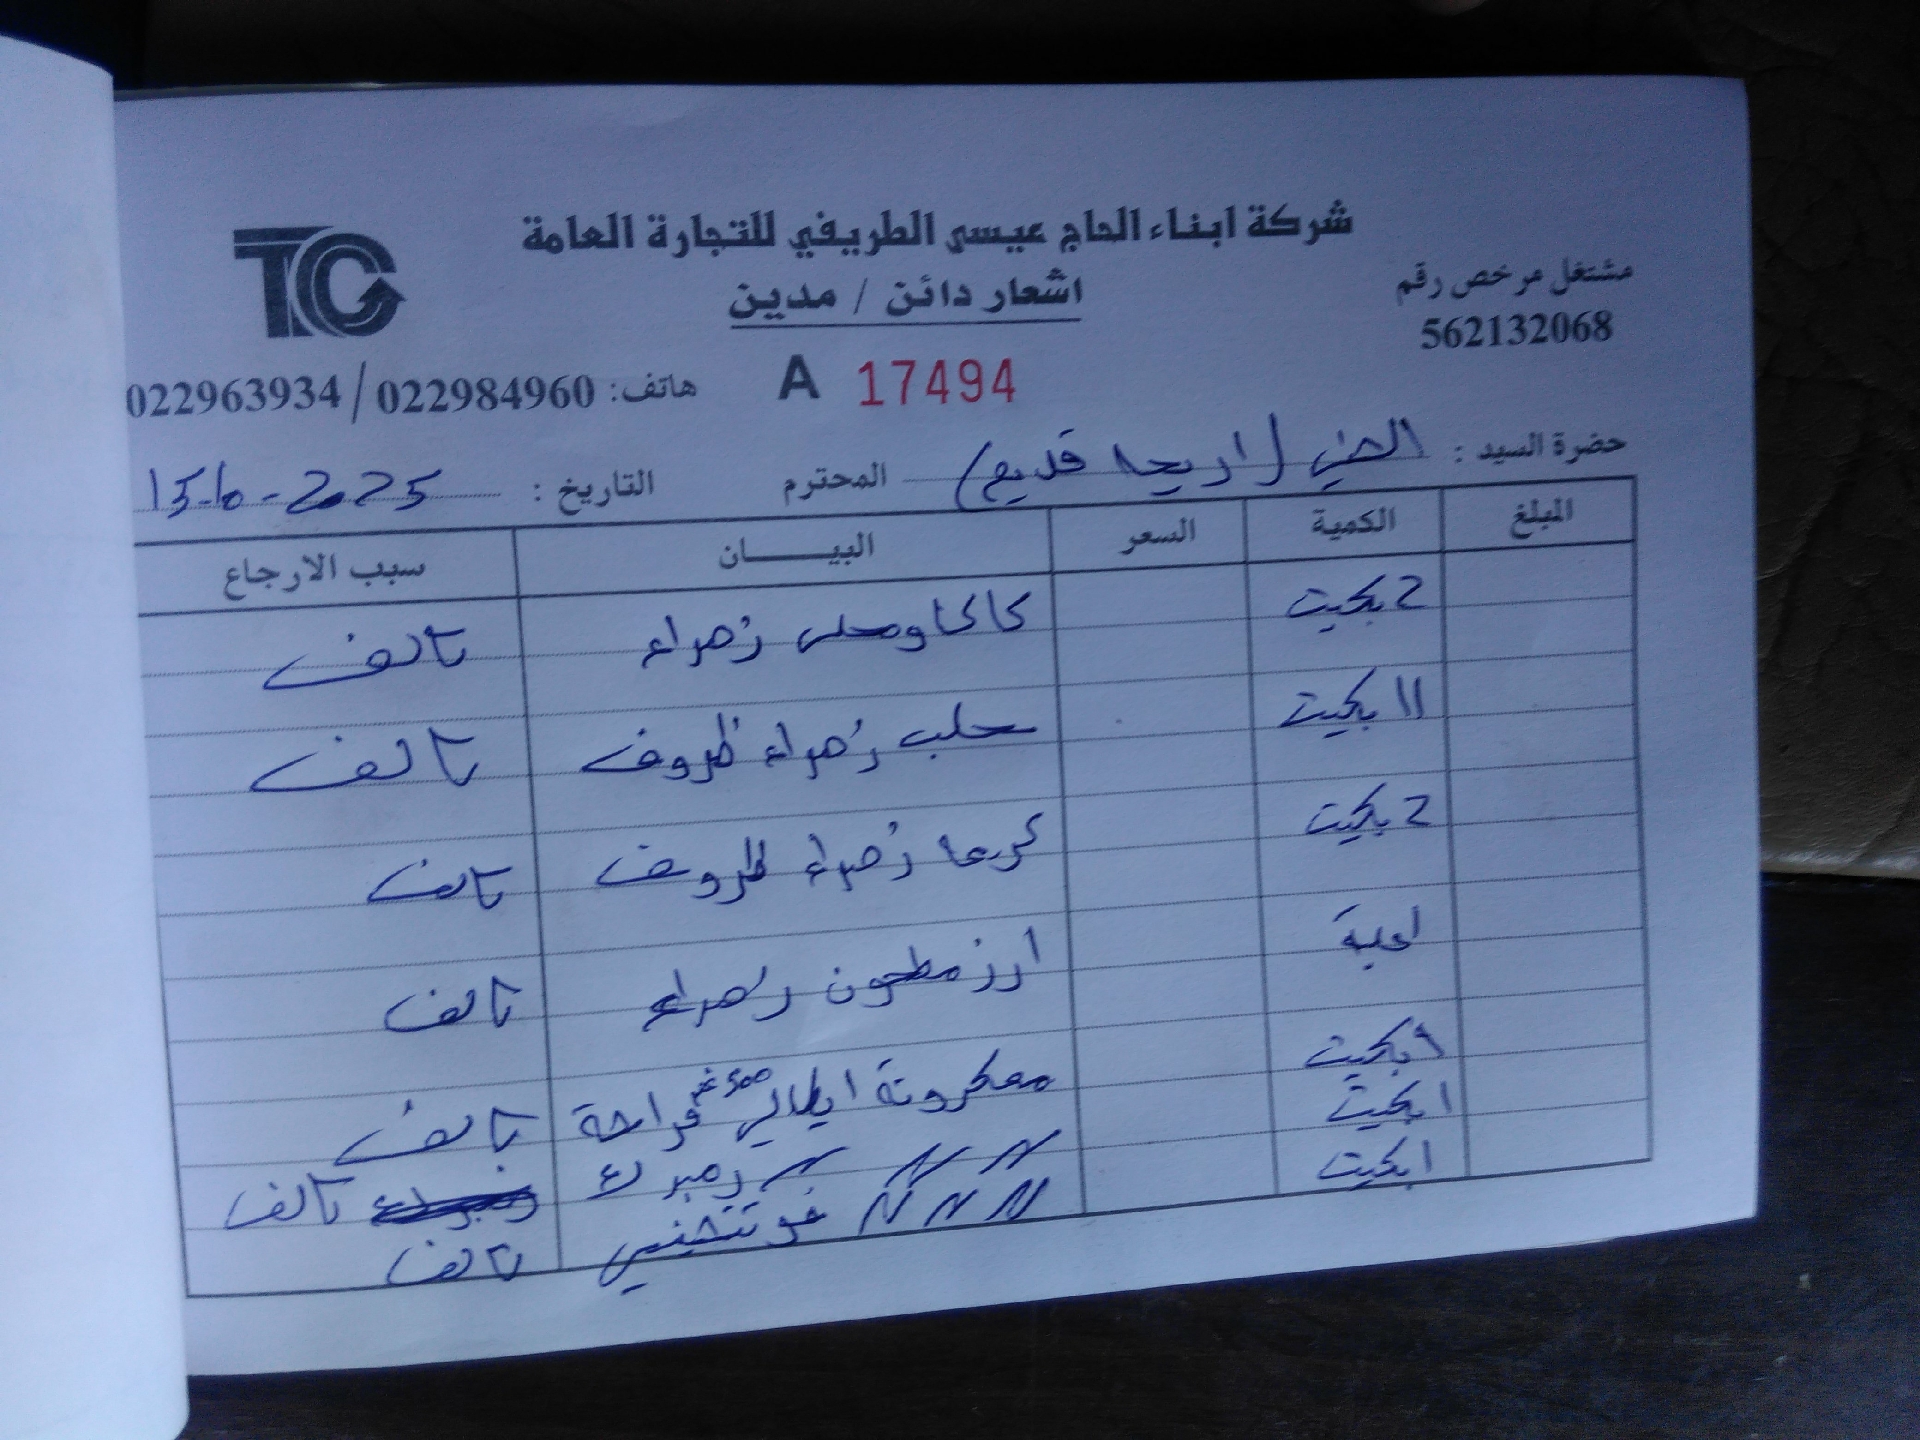 شركة ابناء الحاج عيسى الطريفي للتجارة العامة
TC
اشعار دائن / مدين
مشتغل مرخص رقم
562132068
A 17494
هاتف: 022984960 / 022963934
حضرة السيد : (اريحا قديم) المحترم
التاريخ : 15-10-2025
المبلغ الكمية السعر البيـــــان سبب الارجاع
2 بكيت زهراء تالف
11 بكيت حلب زهراء ظروف تالف
2 بكيت زهراء ظروف تالف
ارز مطحون زهراء تالف
1 بكيت معكرونة ايطالي 500غم فراحة تالف
1 بكيت 〃 〃 〃 تالف
1 بكيت 〃 〃 〃 تالف